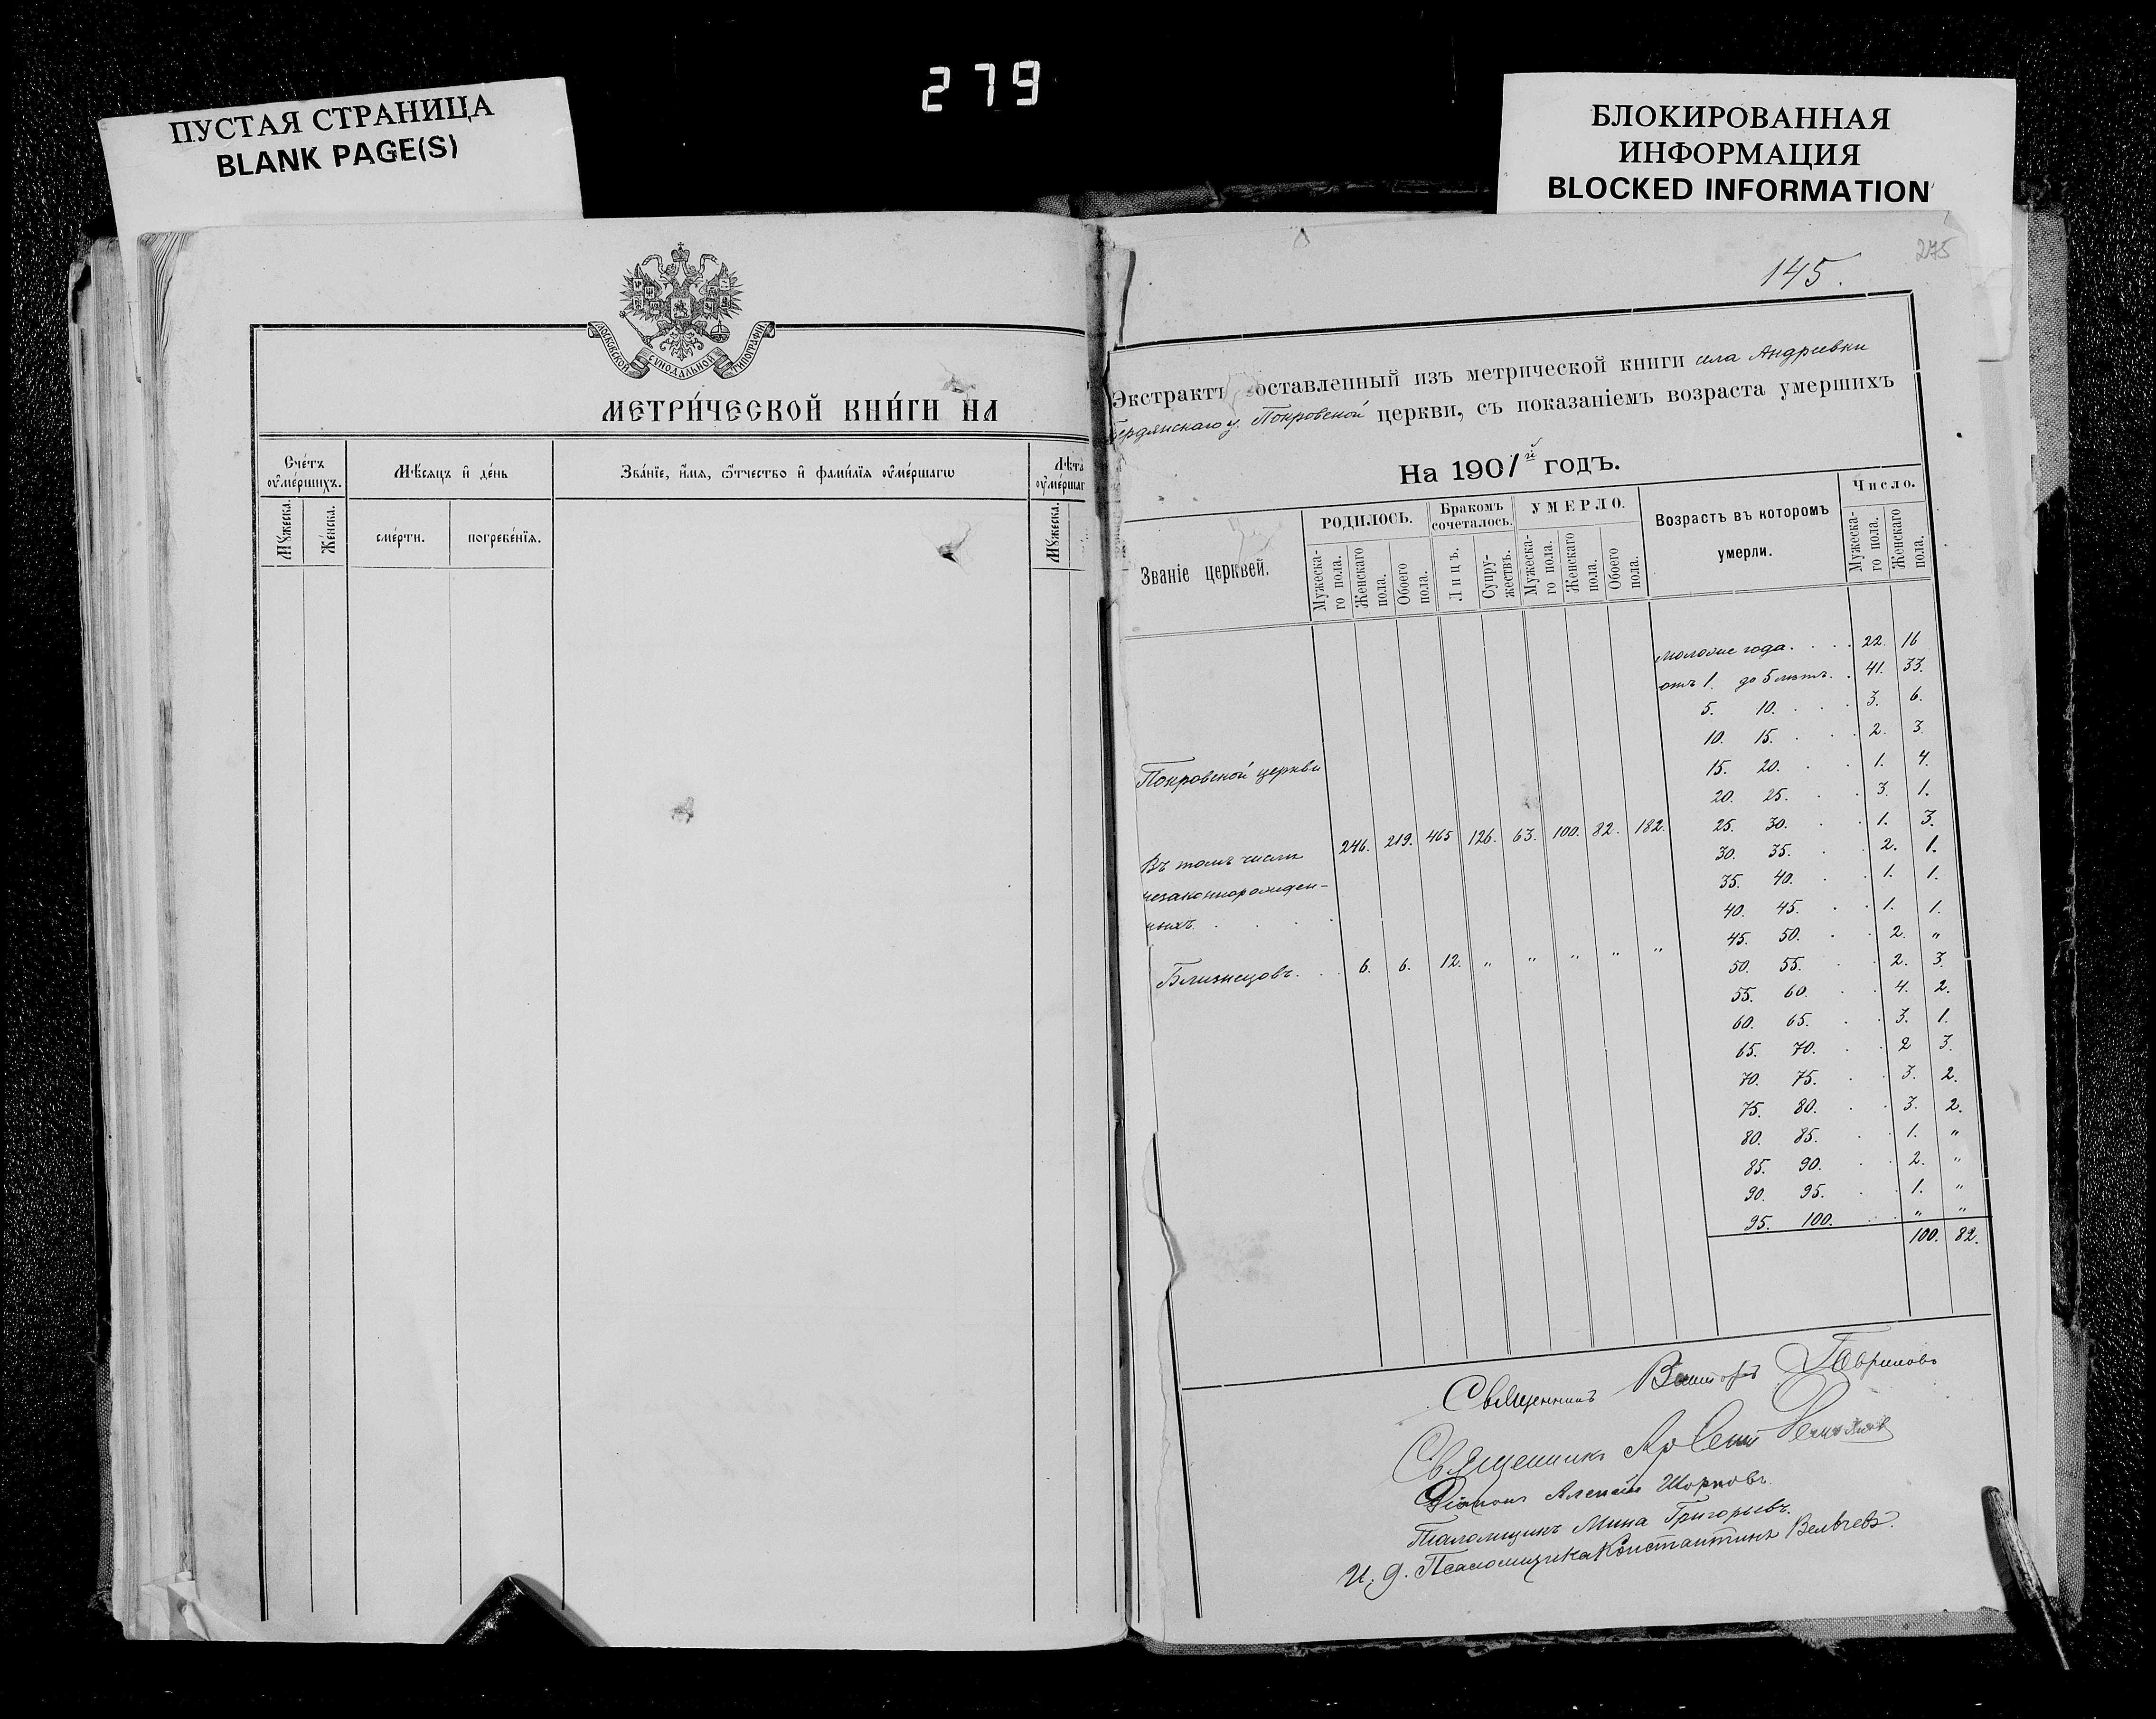 279
ПУСТАЯ СТРАНИЦА
BLANK PAGE(S)
БЛОКИРОВАННАЯ
ИНФОРМАЦИЯ
BLOCKED INFORMATION
МОСКОВСКОЙ СУНОДАЛЬНОЙ ТИПОГРАФІИ
МЕТРИ́ЧЕСКОЙ КНИ́ГИ НА
Сче́тъ ᲂу҆ме́ршихъ.
Мѣ́сяцъ и҆ де́нь
Зва́нїе, и҆́мя, ѻ҆́тчество и҆ фами́лїя ᲂу҆ме́ршагѡ
Лѣ́та
Мꙋ́жеска.
Же́нска.
сме́рти.
погребе́нїя.
Мꙋ́жеска.
275
145.
Экстрактъ составленный изъ метрической книги села Андреевки
Бердянскаго у. Покровской церкви, съ показаніемъ возраста умершихъ
На 1901й годъ.
Званіе церквей.
РОДИЛОСЬ.
Бракомъ сочеталось.
УМЕРЛО.
Возрастъ въ которомъ умерли.
Число.
Мужеска-го пола.
Женскаго пола.
Обоего пола.
Лицъ.
Супру-жествъ.
Мужеска-го пола.
Женскаго пола.
Обоего пола.
Мужеска-го пола.
Женскаго пола.
моложе года. 22. 16
отъ 1. до 5 лѣтъ. 41. 33.
5. 10. 3. 6.
10. 15. 2. 3.
15. 20. 1. 4.
20. 25. 3. 1.
25. 30. 1. 3.
30. 35. 2. 1.
35. 40. 1. 1.
40. 45. 1. 1.
45. 50. 2. "
50. 55. 2. 3.
55. 60. 4. 2.
60. 65. 3. 1.
65. 70. 2 3.
70. 75. 3. 2.
75. 80. 3. 2.
80. 85. 1. "
85. 90. 2. "
90. 95. 1. "
95. 100. " "
100. 82.
Покровской церкви
246. 219. 465 126. 63. 100. 82. 182.
Въ томъ числѣ
незаконнорожден-
ныхъ.
Близнецовъ. 6. 6. 12. " " " " "
Священникъ Викторъ Гавриловъ
Священникъ Арсеній
Діаконъ Алексѣй Шорновъ.
Псаломщикъ Мина Григорьевъ.
И. д. Псаломщика Константинъ Вельчевъ.